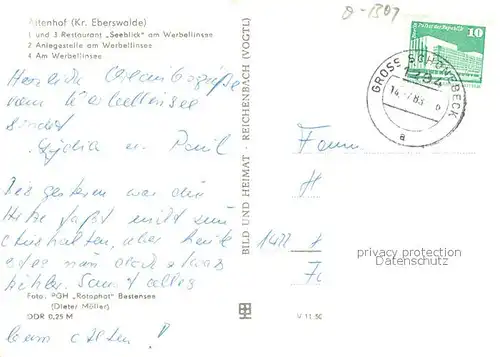 Altenhof (Kr. Eberswalde)
1 und 3 Restaurant „Seeblick" am Werbellinsee
2 Anlegestelle am Werbellinsee
4 Am Werbellinsee
Herzliche Urlaubsgrüße
vom Werbellinsee
sendet
Lydia u. Paul
Bis gestern war die
Hitze fast nicht zum
Aushalten, aber heute
ist es nun doch etwas
kühler. Sonst alles
beim alten!
Foto: PGH „Rotophot" Bestensee
(Dieter Möller)
DDR 0,25 M
BILD UND HEIMAT · REICHENBACH (VOGTL)
V 11 50
10
GROSS SCHÖNEBECK
14.7.83
a
Fam
H
1422
privacy protection
Datenschutz